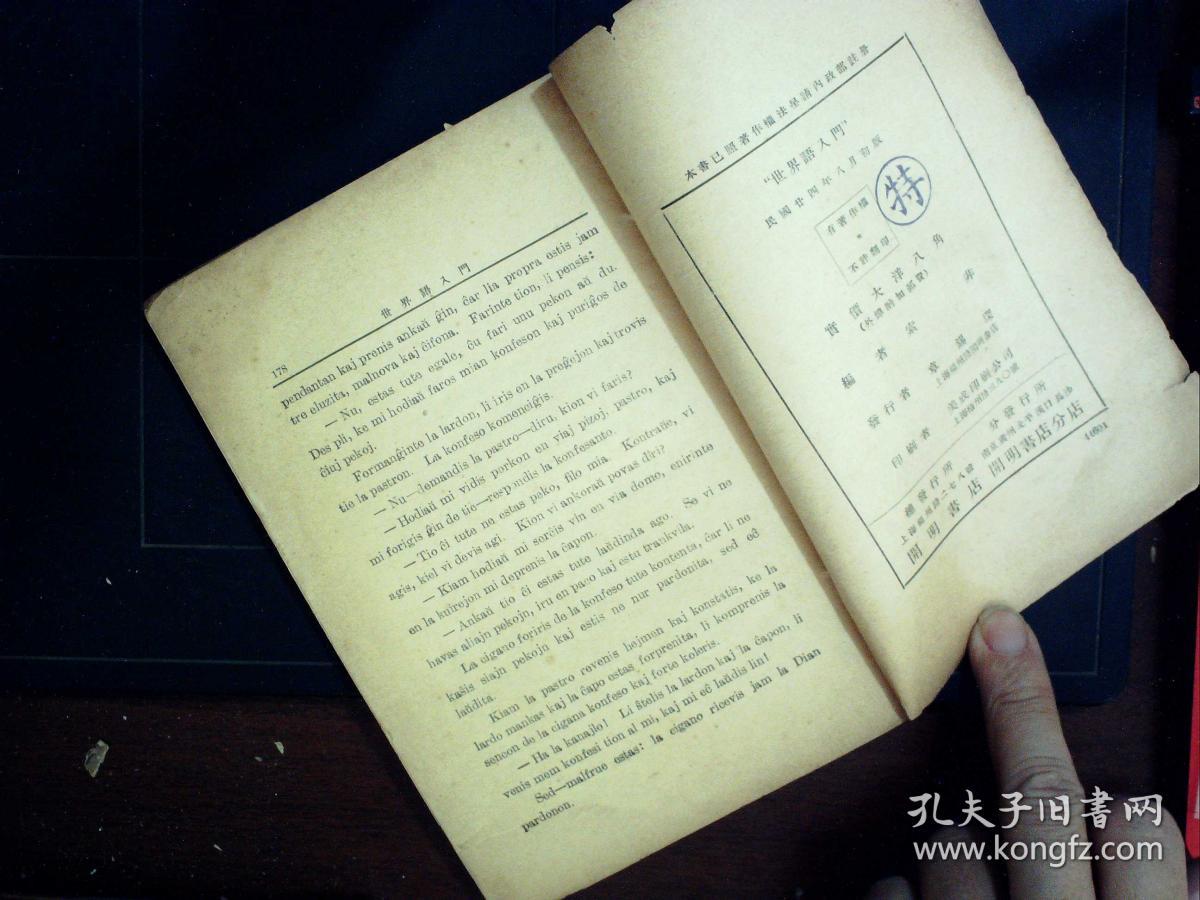 世界語入門
178
pendantan kaj prenis ankaŭ ĝin, ĉar lia propra estis jam
tre eluzita, malnova kaj ĉifona. Farinte tion, li pensis:
— Nu, estas tute egale, ĉu fari unu pekon aŭ du.
Des pli, ke mi hodiaŭ faros mian konfeson kaj puriĝos de
ĉiuj pekoj.
Formanĝinte la lardon, li iris en la preĝejon kaj trovis
tie la pastron. La konfeso komenciĝis.
— Nu—demandis la pastro—diru, kion vi faris?
— Hodiaŭ mi vidis porkon en viaj pizoj, pastro, kaj
mi forigis ĝin de tie—respondis la konfesanto.
— Tio ĉi tute ne estas peko, filo mia. Kontraŭe, vi
agis, kiel vi devis agi. Kion vi ankoraŭ povas diri?
— Kiam hodiaŭ mi serĉis vin en via domo, enirinte
en la kuirejon mi deprenis la ĉapon.
— Ankaŭ tio ĉi estas tute laŭdinda ago. Se vi ne
havas aliajn pekojn, iru en paco kaj estu trankvila.
La cigano foriris de la konfeso tute kontenta, ĉar li ne
kaŝis siajn pekojn kaj estis ne nur pardonita, sed eĉ
laŭdita.
Kiam la pastro revenis hejmen kaj konstatis, ke la
lardo mankas kaj la ĉapo estas forprenita, li komprenis la
sencon de la cigana konfeso kaj forte koleris.
— Ha la kanajlo! Li ŝtelis la lardon kaj la ĉapon, li
venis mem konfesi tion al mi, kaj mi eĉ laŭdis lin!
Sed—malfrue estas: la cigano ricevis jam la Dian
pardonon.
本書已照著作權法呈請內政部註冊
"世界語入門"
民國廿四年八月初版
特
有著作權
不許翻印
實價大洋八角
(外埠酌加郵費)
編者 索非
發行者 章錫琛
印刷者 美成印刷公司
總發行所
開明書店
分發行所
開明書店分店
孔夫子旧书网
www.kongfz.com